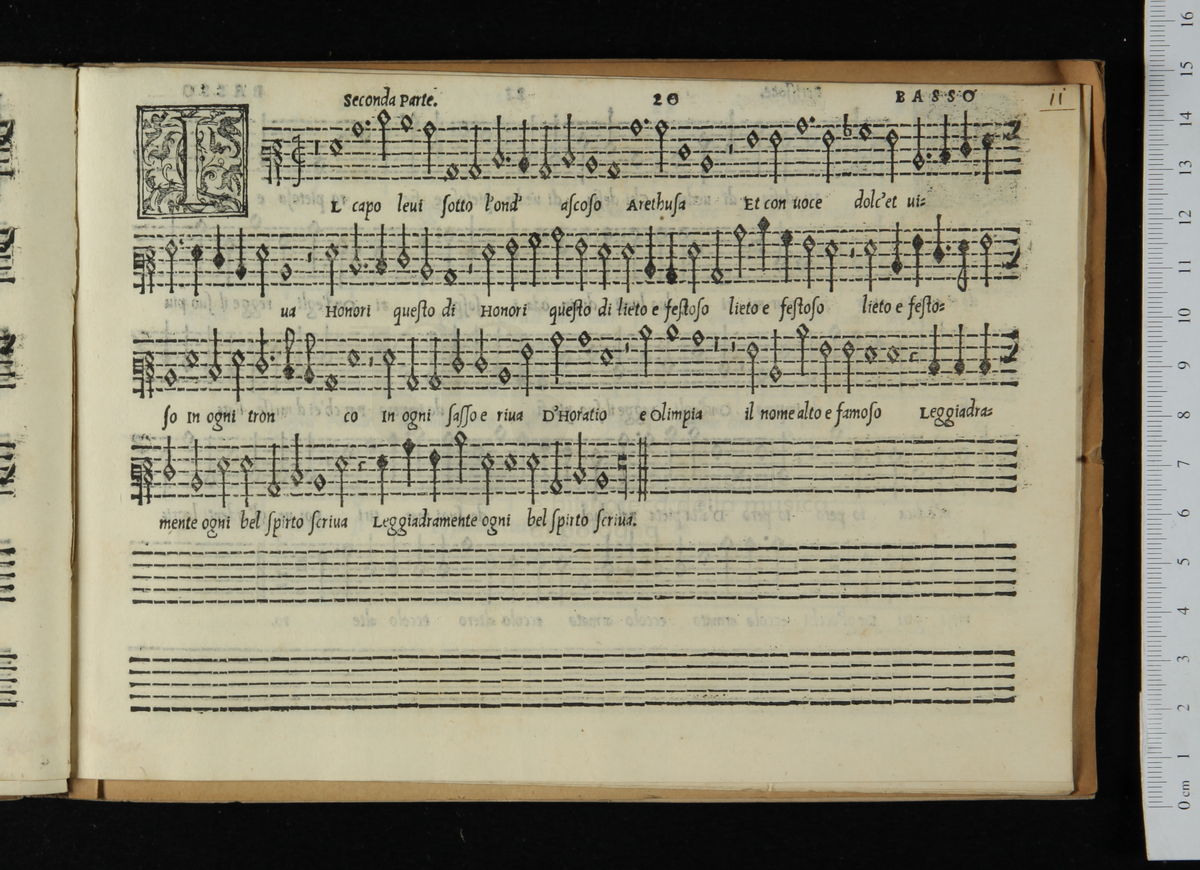 Seconda Parte. 20 BASSO 11
IL capo leui sotto l'ond' ascoso Arethusa Et con uoce dolc'et ui=
ua Honori questo di Honori questo di lieto e festoso lieto e festoso lieto e festo=
so In ogni tron co In ogni sasso e riua D'Horatio e Olimpia il nome alto e famoso Leggiadra=
mente ogni bel spirto scriua Leggiadramente ogni bel spirto scriua.
16
15
14
13
12
11
10
9
8
7
6
5
4
3
2
1
0 cm